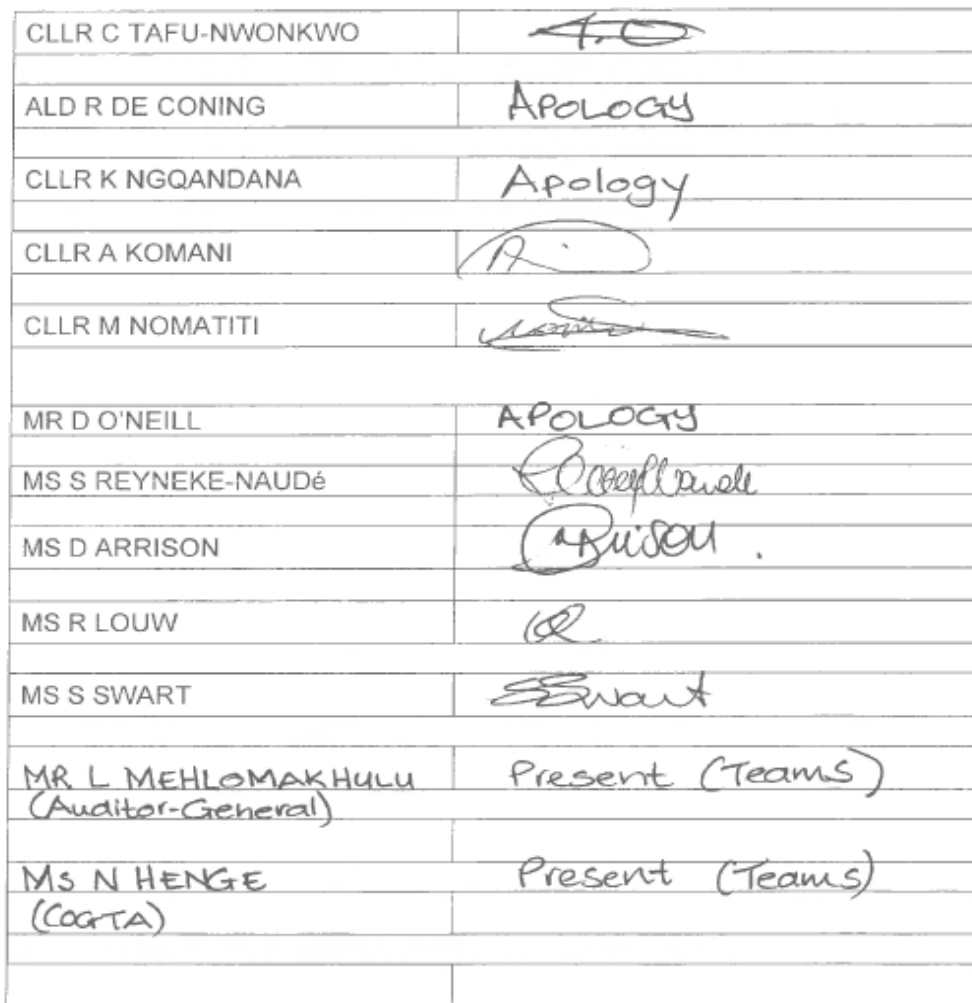 CLLR C TAFU-NWONKWO
ALD R DE CONING APOLOGY
CLLR K NGQANDANA Apology
CLLR A KOMANI
CLLR M NOMATITI
MR D O'NEILL APOLOGY
MS S REYNEKE-NAUDé
MS D ARRISON Arrison.
MS R LOUW
MS S SWART SSwart
MR L MEHLOMAKHULU Present (Teams)
(Auditor-General)
MS N HENGE Present (Teams)
(COGTA)